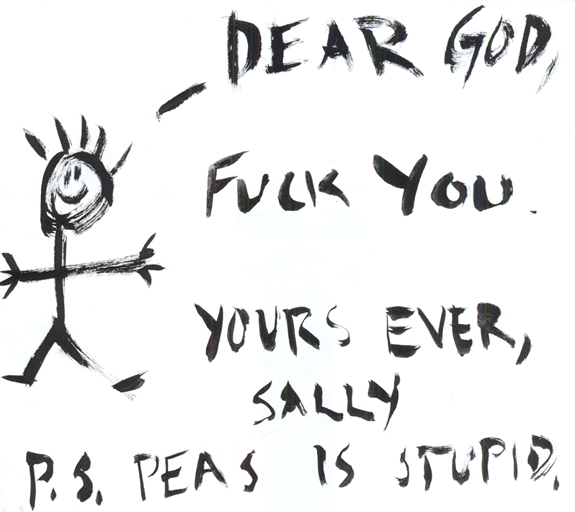 DEAR GOD,
FUCK YOU.
YOURS EVER,
SALLY
P.S. PEAS IS STUPID.